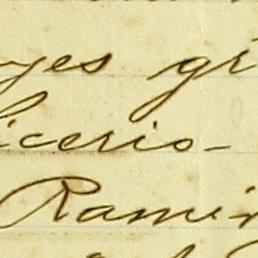 yes gr
iceris-
Ramir